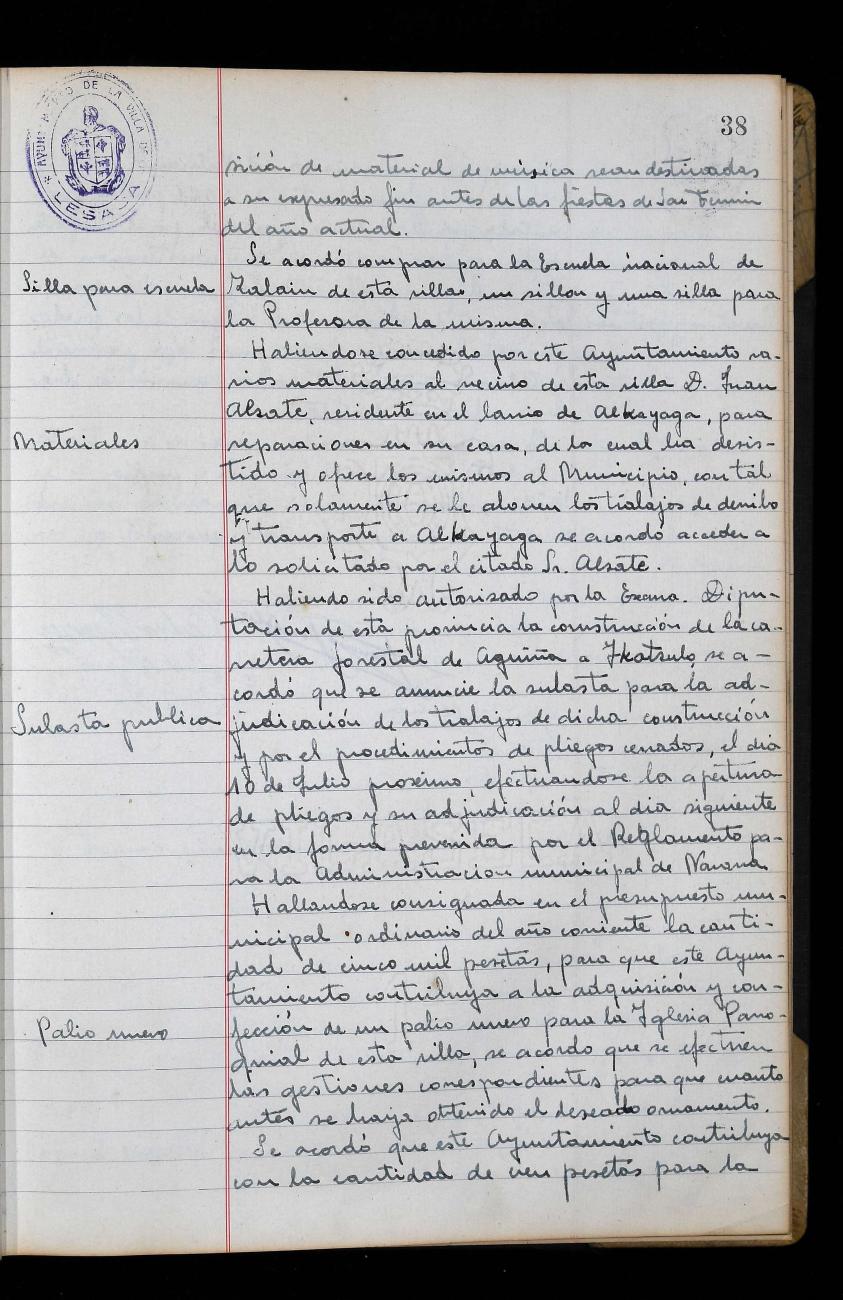 38
AYUNTAMIENTO DE LA VILLA DE
LESACA
sición de material de música sean destinadas
a su expresado fin antes de las fiestas de San Fermin
del año actual.
Se acordó comprar para la Escuela nacional de
Silla para escuela
Zalain de esta villa, un sillon y una silla para
la Profesora de la misma.
Habiendose concedido por este Ayuntamiento va-
rios materiales al vecino de esta villa D. Juan
Alzate, residente en el barrio de Alkayaga, para
Materiales
reparaciones en su casa, de la cual ha desis-
tido y ofrece los mismos al Municipio, con tal
que solamente se le abonen los trabajos de derribo
y transporte a Alkayaga se acordó acceder a
lo solicitado por el citado Sr. Alzate.
Habiendo sido autorizado por la Excma. Dipu-
tación de esta provincia la construcción de la ca-
rretera forestal de Aguiña a Ikatzulo, se a-
cordó que se anuncie la subasta para la ad-
Subasta publica
judicación de los trabajos de dicha construcción
y por el procedimientos de pliegos cerrados, el dia
10 de Julio proximo, efectuandose la apertura
de pliegos y su adjudicación al dia siguiente
en la forma prevenida por el Reglamento pa-
ra la Administracion municipal de Navarra
Hallandose consignada en el presupuesto mu-
nicipal ordinario del año corriente la canti-
dad de cinco mil pesetas, para que este Ayun-
tamiento contribuya a la adquisición y con-
Palio nuevo
fección de un palio nuevo para la Iglesia Parro-
quial de esta villa, se acordo que se efectuen
las gestiones correspondientes para que cuanto
antes se haya obtenido el deseado ornamento.
Se acordó que este Ayuntamiento contribuya
con la cantidad de cien pesetas para la